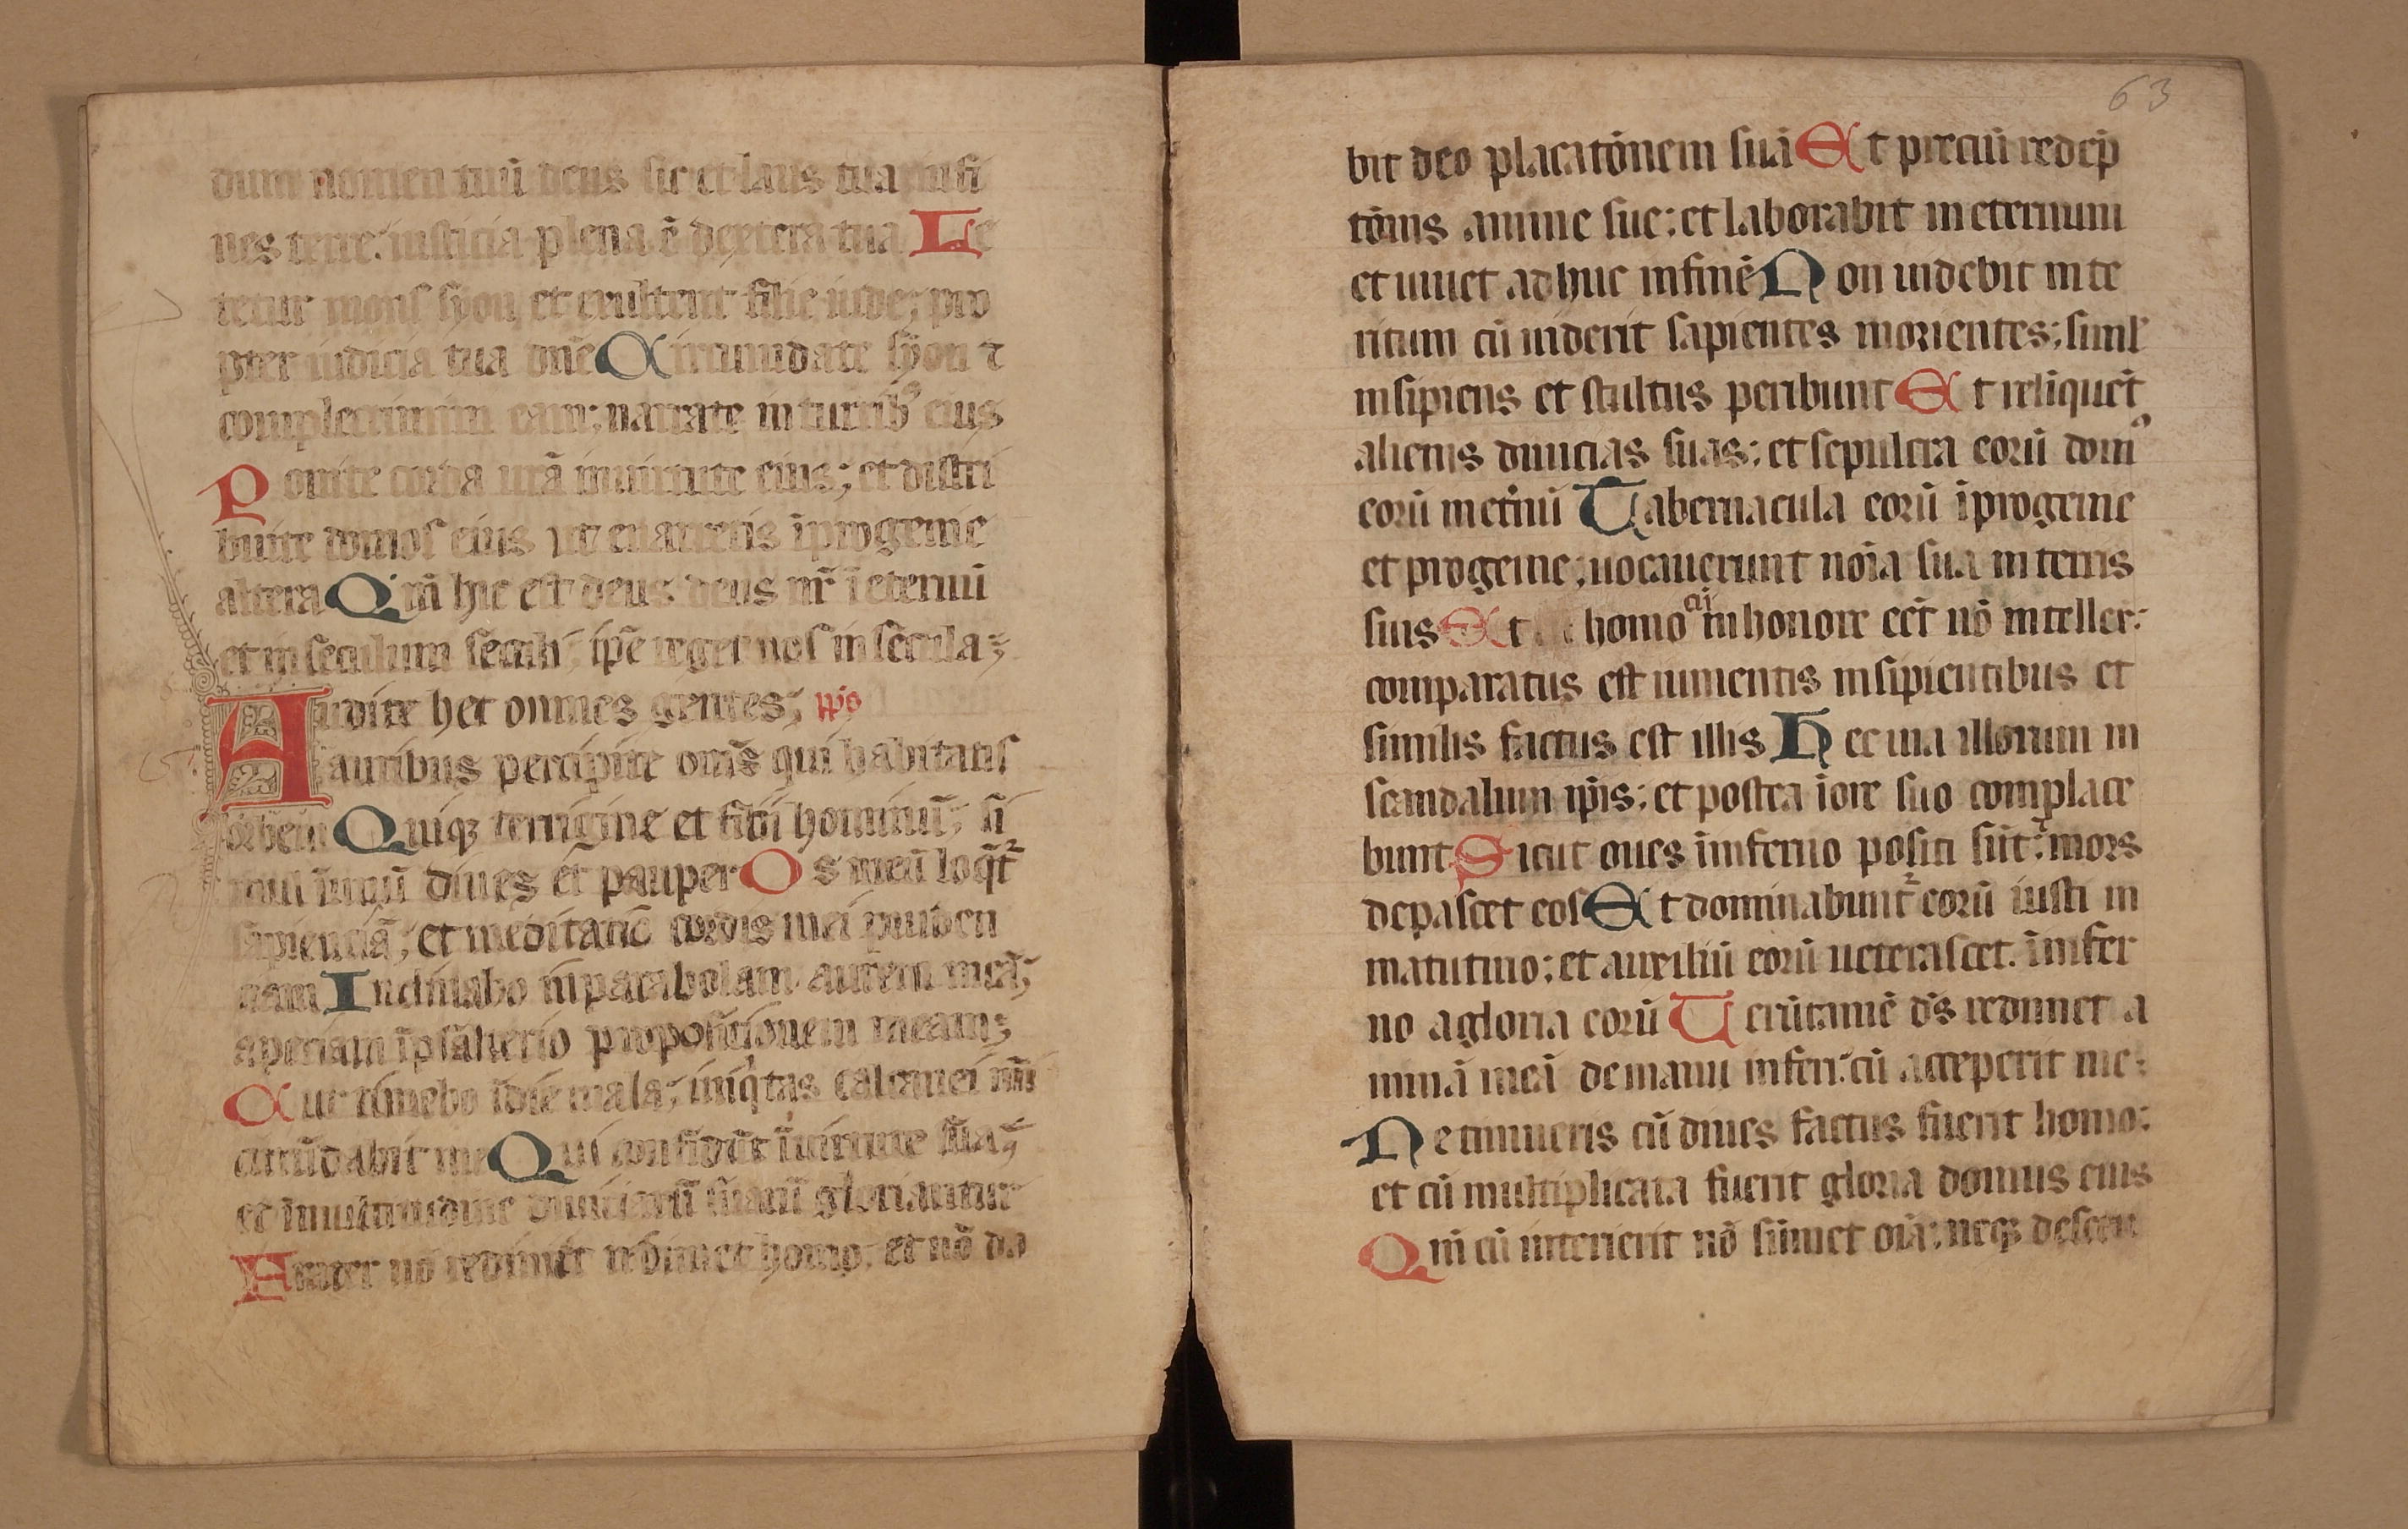 dum nomen tuū deus sic et laus tua in fi
nes terre: iusticia plena ē dextera tua Le
tetur mons syon et exultent filie iude; pro
pter iudicia tua dn̄e Circumdate syon ⁊
complectimini eam: narrate in turrib⁹ eius
Ponite corda urā in uirtute eius; et distri
buite domos eius ut enarretis ī progenie
altera Qm̄ hic est deus deus nr̄ ī eternū
et in seculum seculi; ip̄e reget nos in secula;
Audite hec omnes gentes; ps
auribus percipite om̄s qui habitatis
orbem Quiqꝫ terrigine et filii hominū; si
mul ī unū diues et pauper Os meū loq̄t᷑
sapienciā; et meditatio cordis mei pruden
ciam Inclinabo in parabolam aurem meā;
aperiam ī psalterio proposicionem meam;
Cur timebo ī die mala; iniq̇tas calcanei mei
circūdabit me Qui confidūt ī uirtute sua;
et ī multitudine diuiciarū suarū gloriantur
Frater nō redimet redimet homo; et nō da
63
bit deo placatōnem suā Et preciū redēp
tōnis anime sue: et laborabit in eternum
et uiuet adhuc in finē Non uidebit inte
ritum cū uiderit sapientes morientes: siml̓
insipiens et stultus peribunt Et relīquēt
alienis diuicias suas: et sepulcra eorū dom⁹
eorū in et̄nū Tabernacula eorū ī progenie
et progenie; uocauerunt nōia sua in terris
suis Et homo cū in honore eēt nō intellex:
comparatus est iumentis insipientibus et
similis factus est illis Hec uia illorum in
scandalum ip̄is: et postea ī ore suo complace
bunt Sicut oues ī inferno positi sūt: mors
depascet eos Et dominabunt᷑ eorū iusti in
matutino: et auxiliū eorū ueterascet. ī infer
no a gloria eorū Uerūtamē ds̄ redimet a
nimā meā de manu inferi: cū acceperit me:
Ne timueris cū diues factus fuerit homo:
et cū multiplicata fuerit gloria domus eius
Qm̄ cū interierit nō sūmet oīa: neqꝫ descen